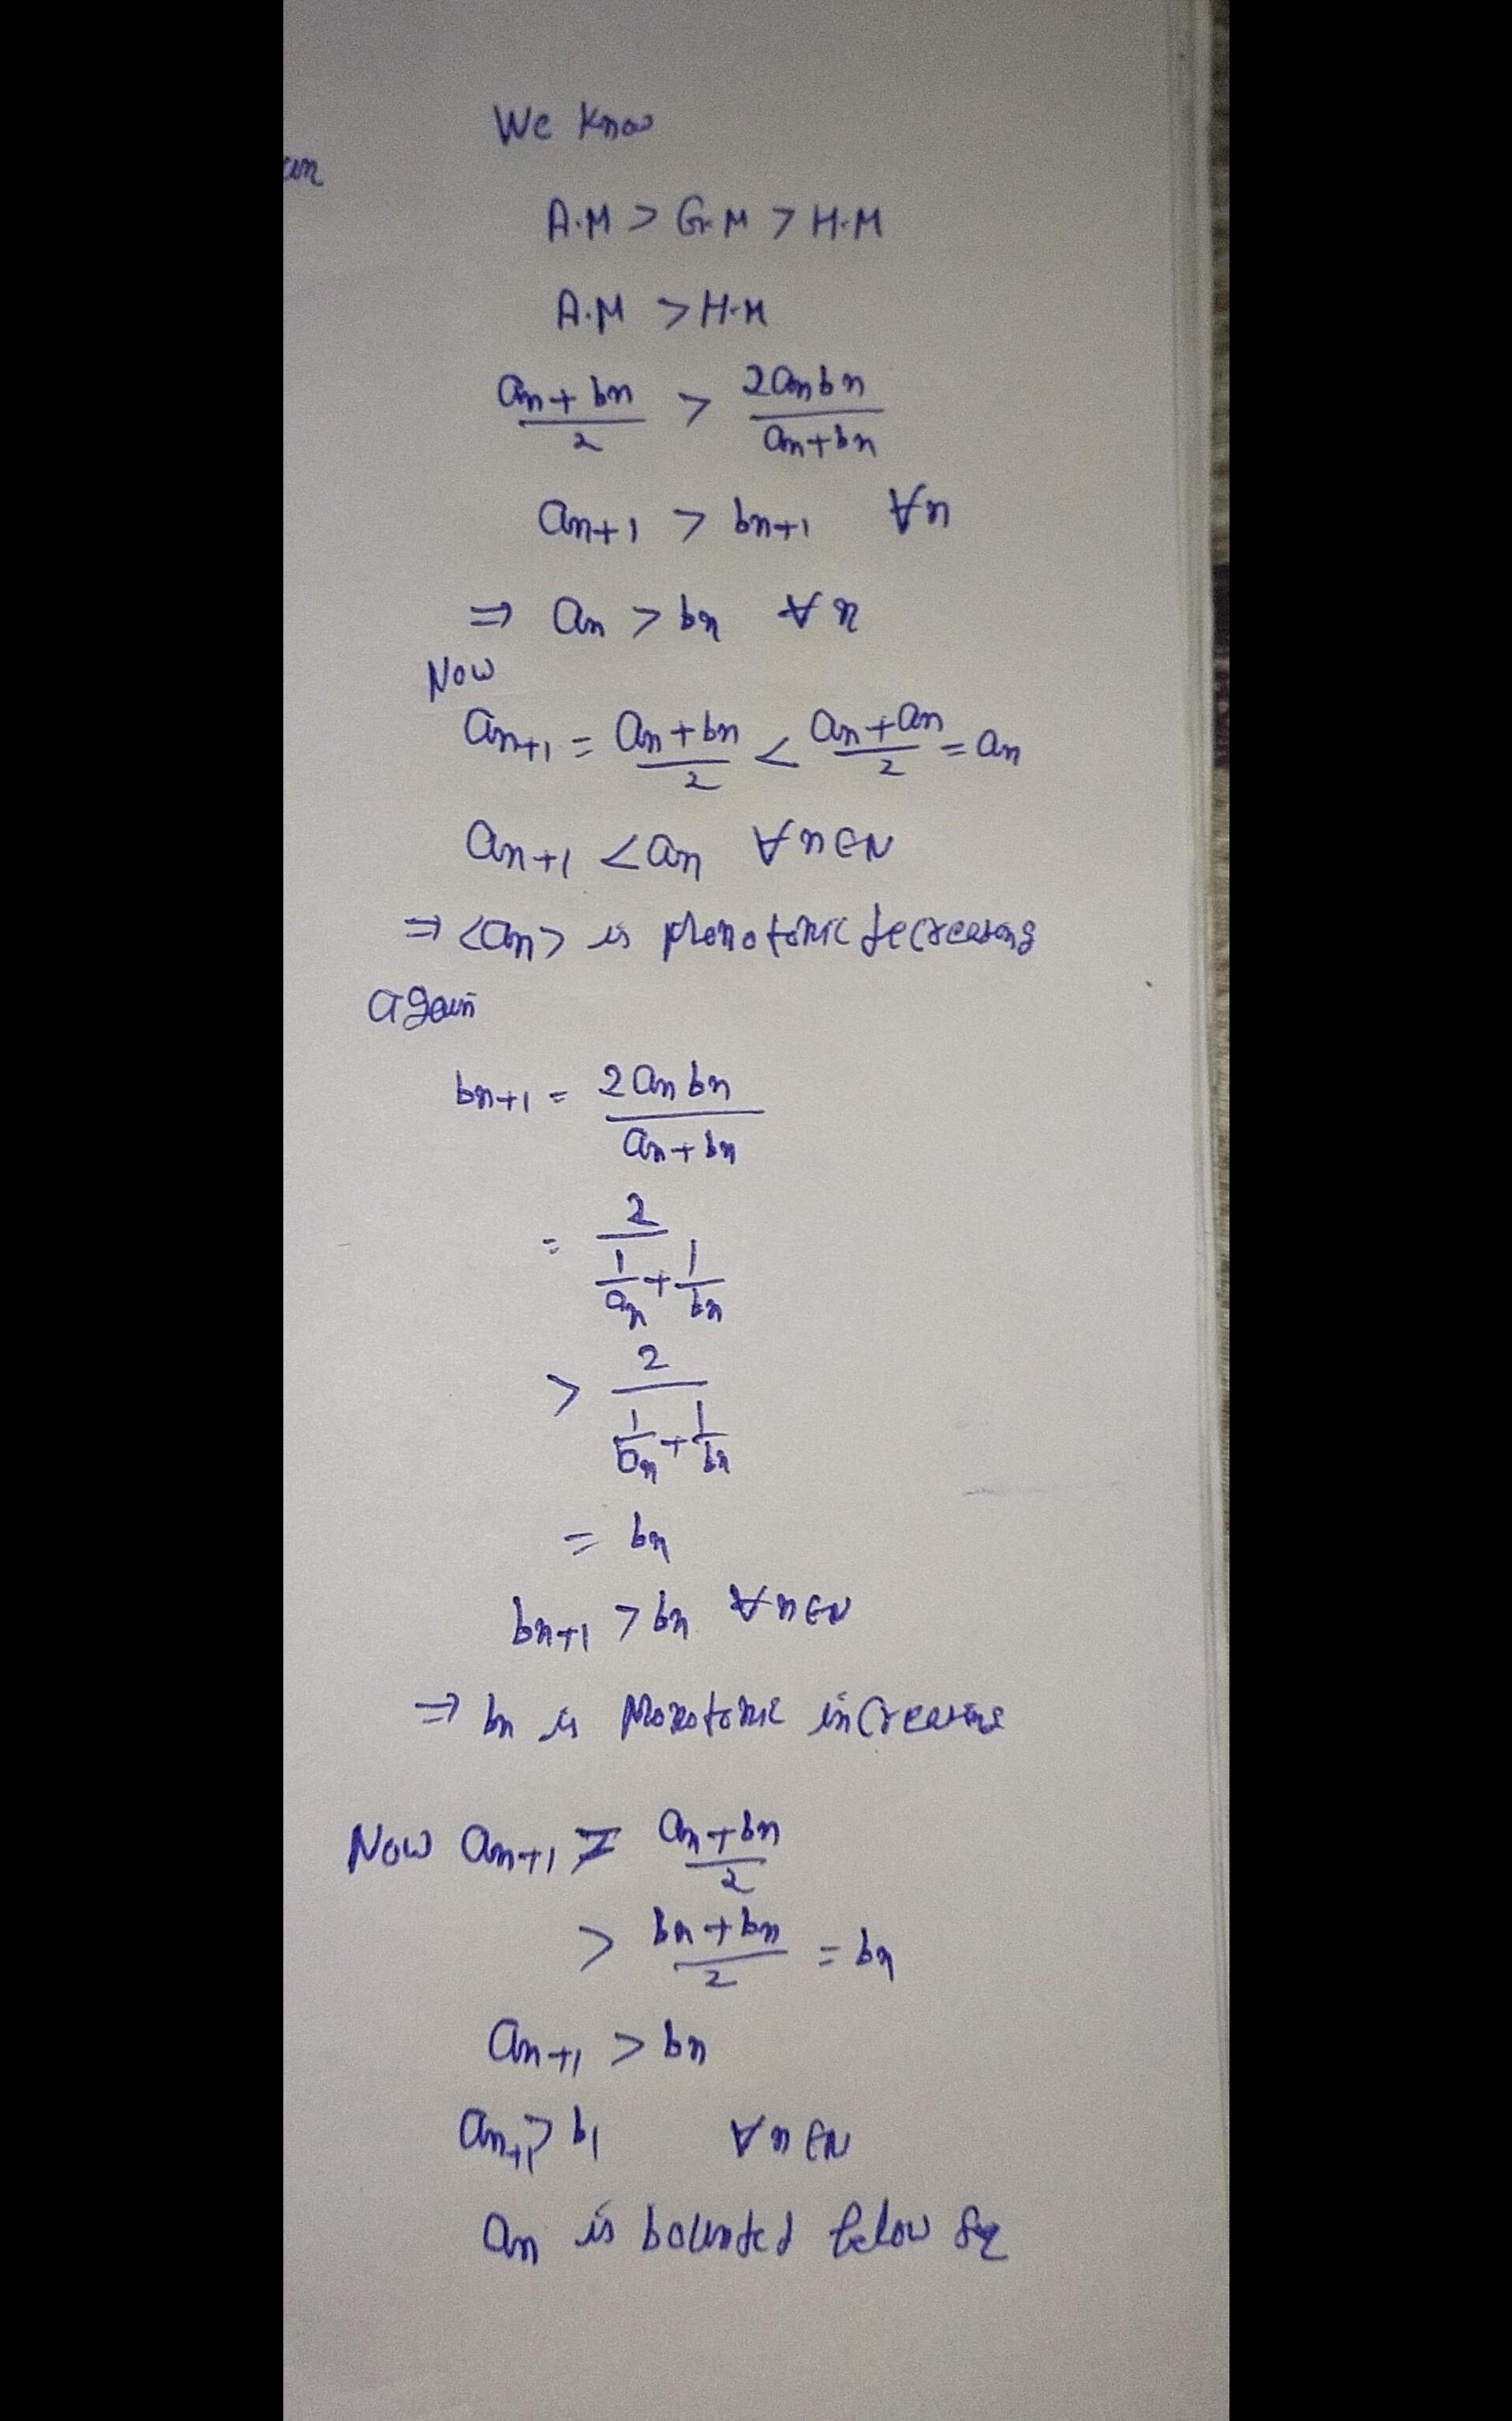 We know
an
A.M > G.M > H.M
A.M > H.M
an + bn / 2 > 2anbn / an+bn
an+1 > bn+1 ∀n
⇒ an > bn ∀n
Now
an+1 = an + bn / 2 < an + an / 2 = an
an+1 < an ∀n∈N
⇒ <an> is Monotonic decreasing
again
bn+1 = 2an bn / an + bn
= 2 / 1/an + 1/bn
> 2 / 1/bn + 1/bn
= bn
bn+1 > bn ∀n∈N
⇒ bn is Monotonic increasing
Now an+1 = an + bn / 2
> bn + bn / 2 = bn
an+1 > bn
an+1 > b1 ∀n∈N
an is bounded below